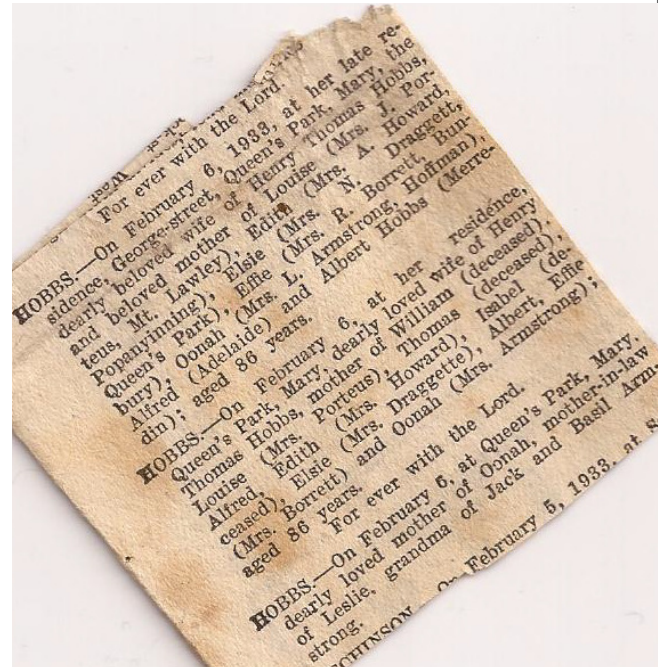 For ever with the Lord
HOBBS.—On February 6, 1933, at her late re-
sidence, George-street, Queen's Park, Mary, the
dearly beloved wife of Henry Thomas Hobbs,
and beloved mother of Louise (Mrs. J. Por-
teus, Mt. Lawley), Edith (Mrs. A. Howard,
Popanyinning), Elsie (Mrs. N. Draggett,
Queen's Park), Effie (Mrs. R. Borrett, Bun-
bury), Oonah (Mrs. L. Armstrong, Hoffman),
Alfred (Adelaide) and Albert Hobbs (Merre-
din); aged 86 years.
HOBBS.—On February 6, at her residence,
Queen's Park, Mary, dearly loved wife of Henry
Thomas Hobbs, mother of William (deceased),
Louise (Mrs. Porteus), Thomas (deceased),
Alfred, Edith (Mrs. Howard), Isabel (de-
ceased), Elsie (Mrs. Draggette), Albert, Effie
(Mrs. Borrett) and Oonah (Mrs. Armstrong);
aged 86 years.
For ever with the Lord.
HOBBS.—On February 6, at Queen's Park, Mary,
dearly loved mother of Oonah, mother-in-law
of Leslie, grandma of Jack and Basil Arm-
strong.
CHINSON.—On February 5, 1933, at S